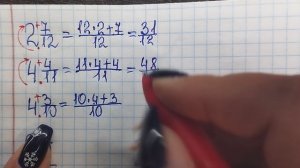 2 7/12 = (12·2+7)/12 = 31/12
4 4/11 = (11·4+4)/11 = 48
4 3/10 = (10·4+3)/10